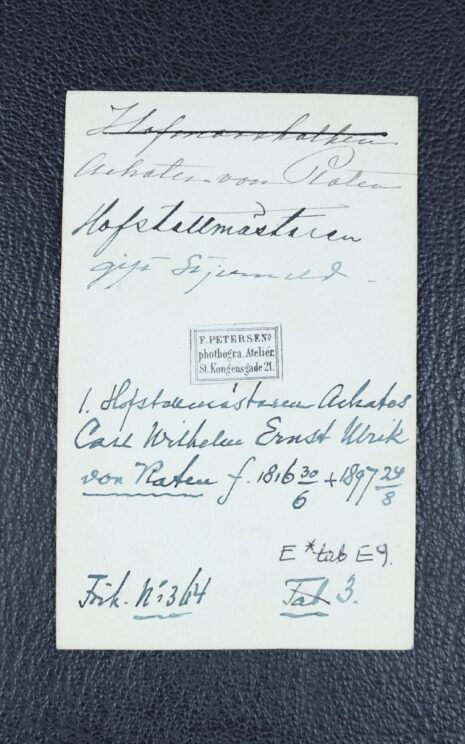 Hofmarskalken
Achates von Platen
Hofstallmästaren
gift
F. PETERSENS
phothogra. Atelier.
St. Kongensgade 21.
1. Hofstallmästaren Achates
Carl Wilhelm Ernst Ulrik
von Platen f. 1816 30/6 + 1897 24/8
E * tab E9.
Frih. No 364 Tab 3.